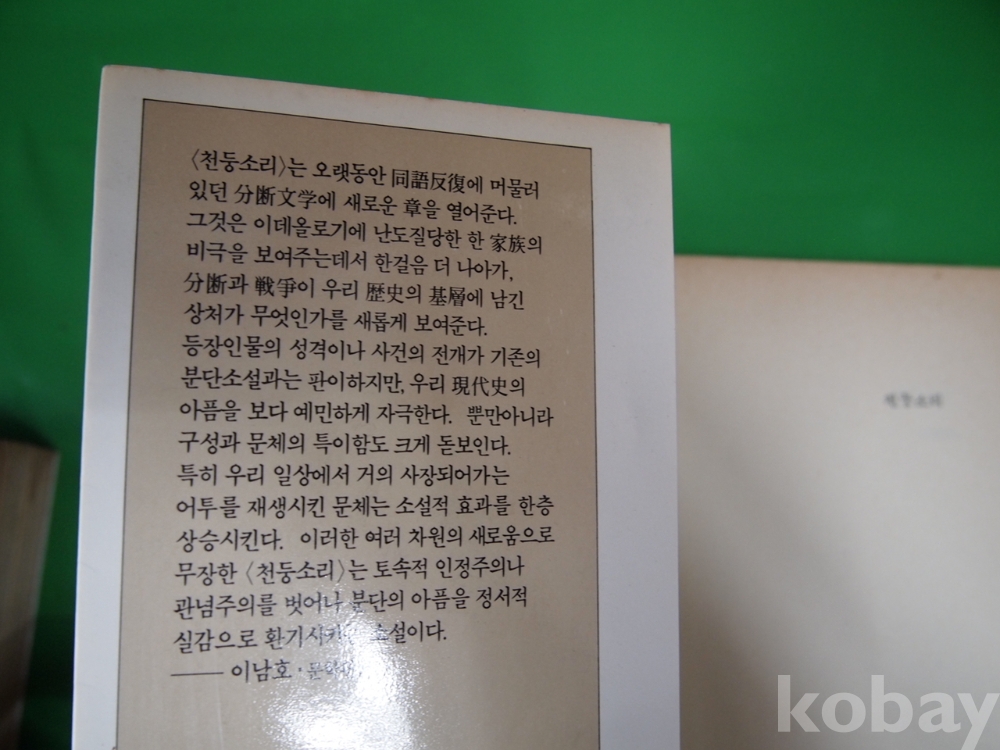 〈천둥소리〉는 오랫동안 同語反復에 머물러
있던 分断文学에 새로운 章을 열어준다.
그것은 이데올로기에 난도질당한 한 家族의
비극을 보여주는데서 한걸음 더 나아가,
分断과 戦爭이 우리 歴史의 基層에 남긴
상처가 무엇인가를 새롭게 보여준다.
등장인물의 성격이나 사건의 전개가 기존의
분단소설과는 판이하지만, 우리 現代史의
아픔을 보다 예민하게 자극한다. 뿐만아니라
구성과 문체의 특이함도 크게 돋보인다.
특히 우리 일상에서 거의 사장되어가는
어투를 재생시킨 문체는 소설적 효과를 한층
상승시킨다. 이러한 여러 차원의 새로움으로
무장한 〈천둥소리〉는 토속적 인정주의나
관념주의를 벗어나 분단의 아픔을 정서적
실감으로 환기시키는 소설이다.
—— 이남호 ·
천둥소리
kobay